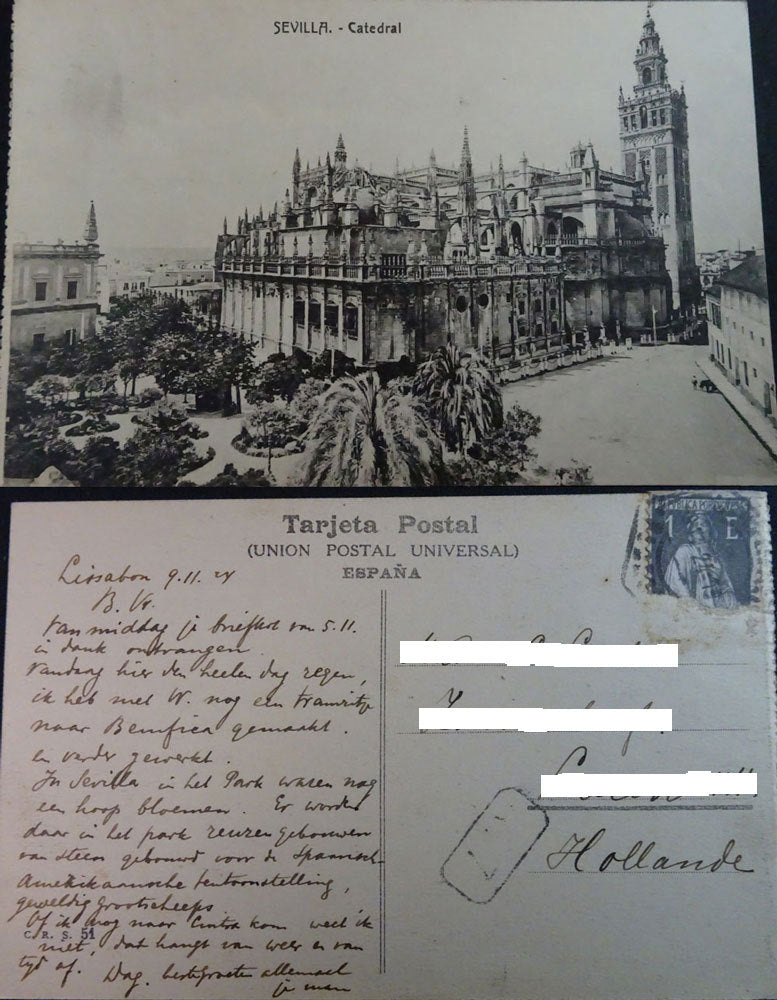 SEVILLA. - Catedral
Tarjeta Postal
(UNION POSTAL UNIVERSAL)
ESPAÑA
REPUBLICA PORTUGUESA
1 E.
Lissabon 9.11.28
B. Vr.
Van middag je briefkrt van 5.11.
in dank ontvangen.
Vandaag hier den heelen dag regen,
ik heb met W. nog een tramritje
naar Bemfica gemaakt.
en verder gewerkt.
In Sevilla in het Park waren nog
een hoop bloemen. Er worden
daar in het park reuzengebouwen
van steen gebouwd voor de Spaansch-
Amerikaansche tentoonstelling,
geweldig grootscheeps.
Of ik nog naar Cintra kom weet ik
niet, dat hangt van weer en van
tyd af. Dag. beste groeten allemaal
je man
C. R. S. 51
Hollande